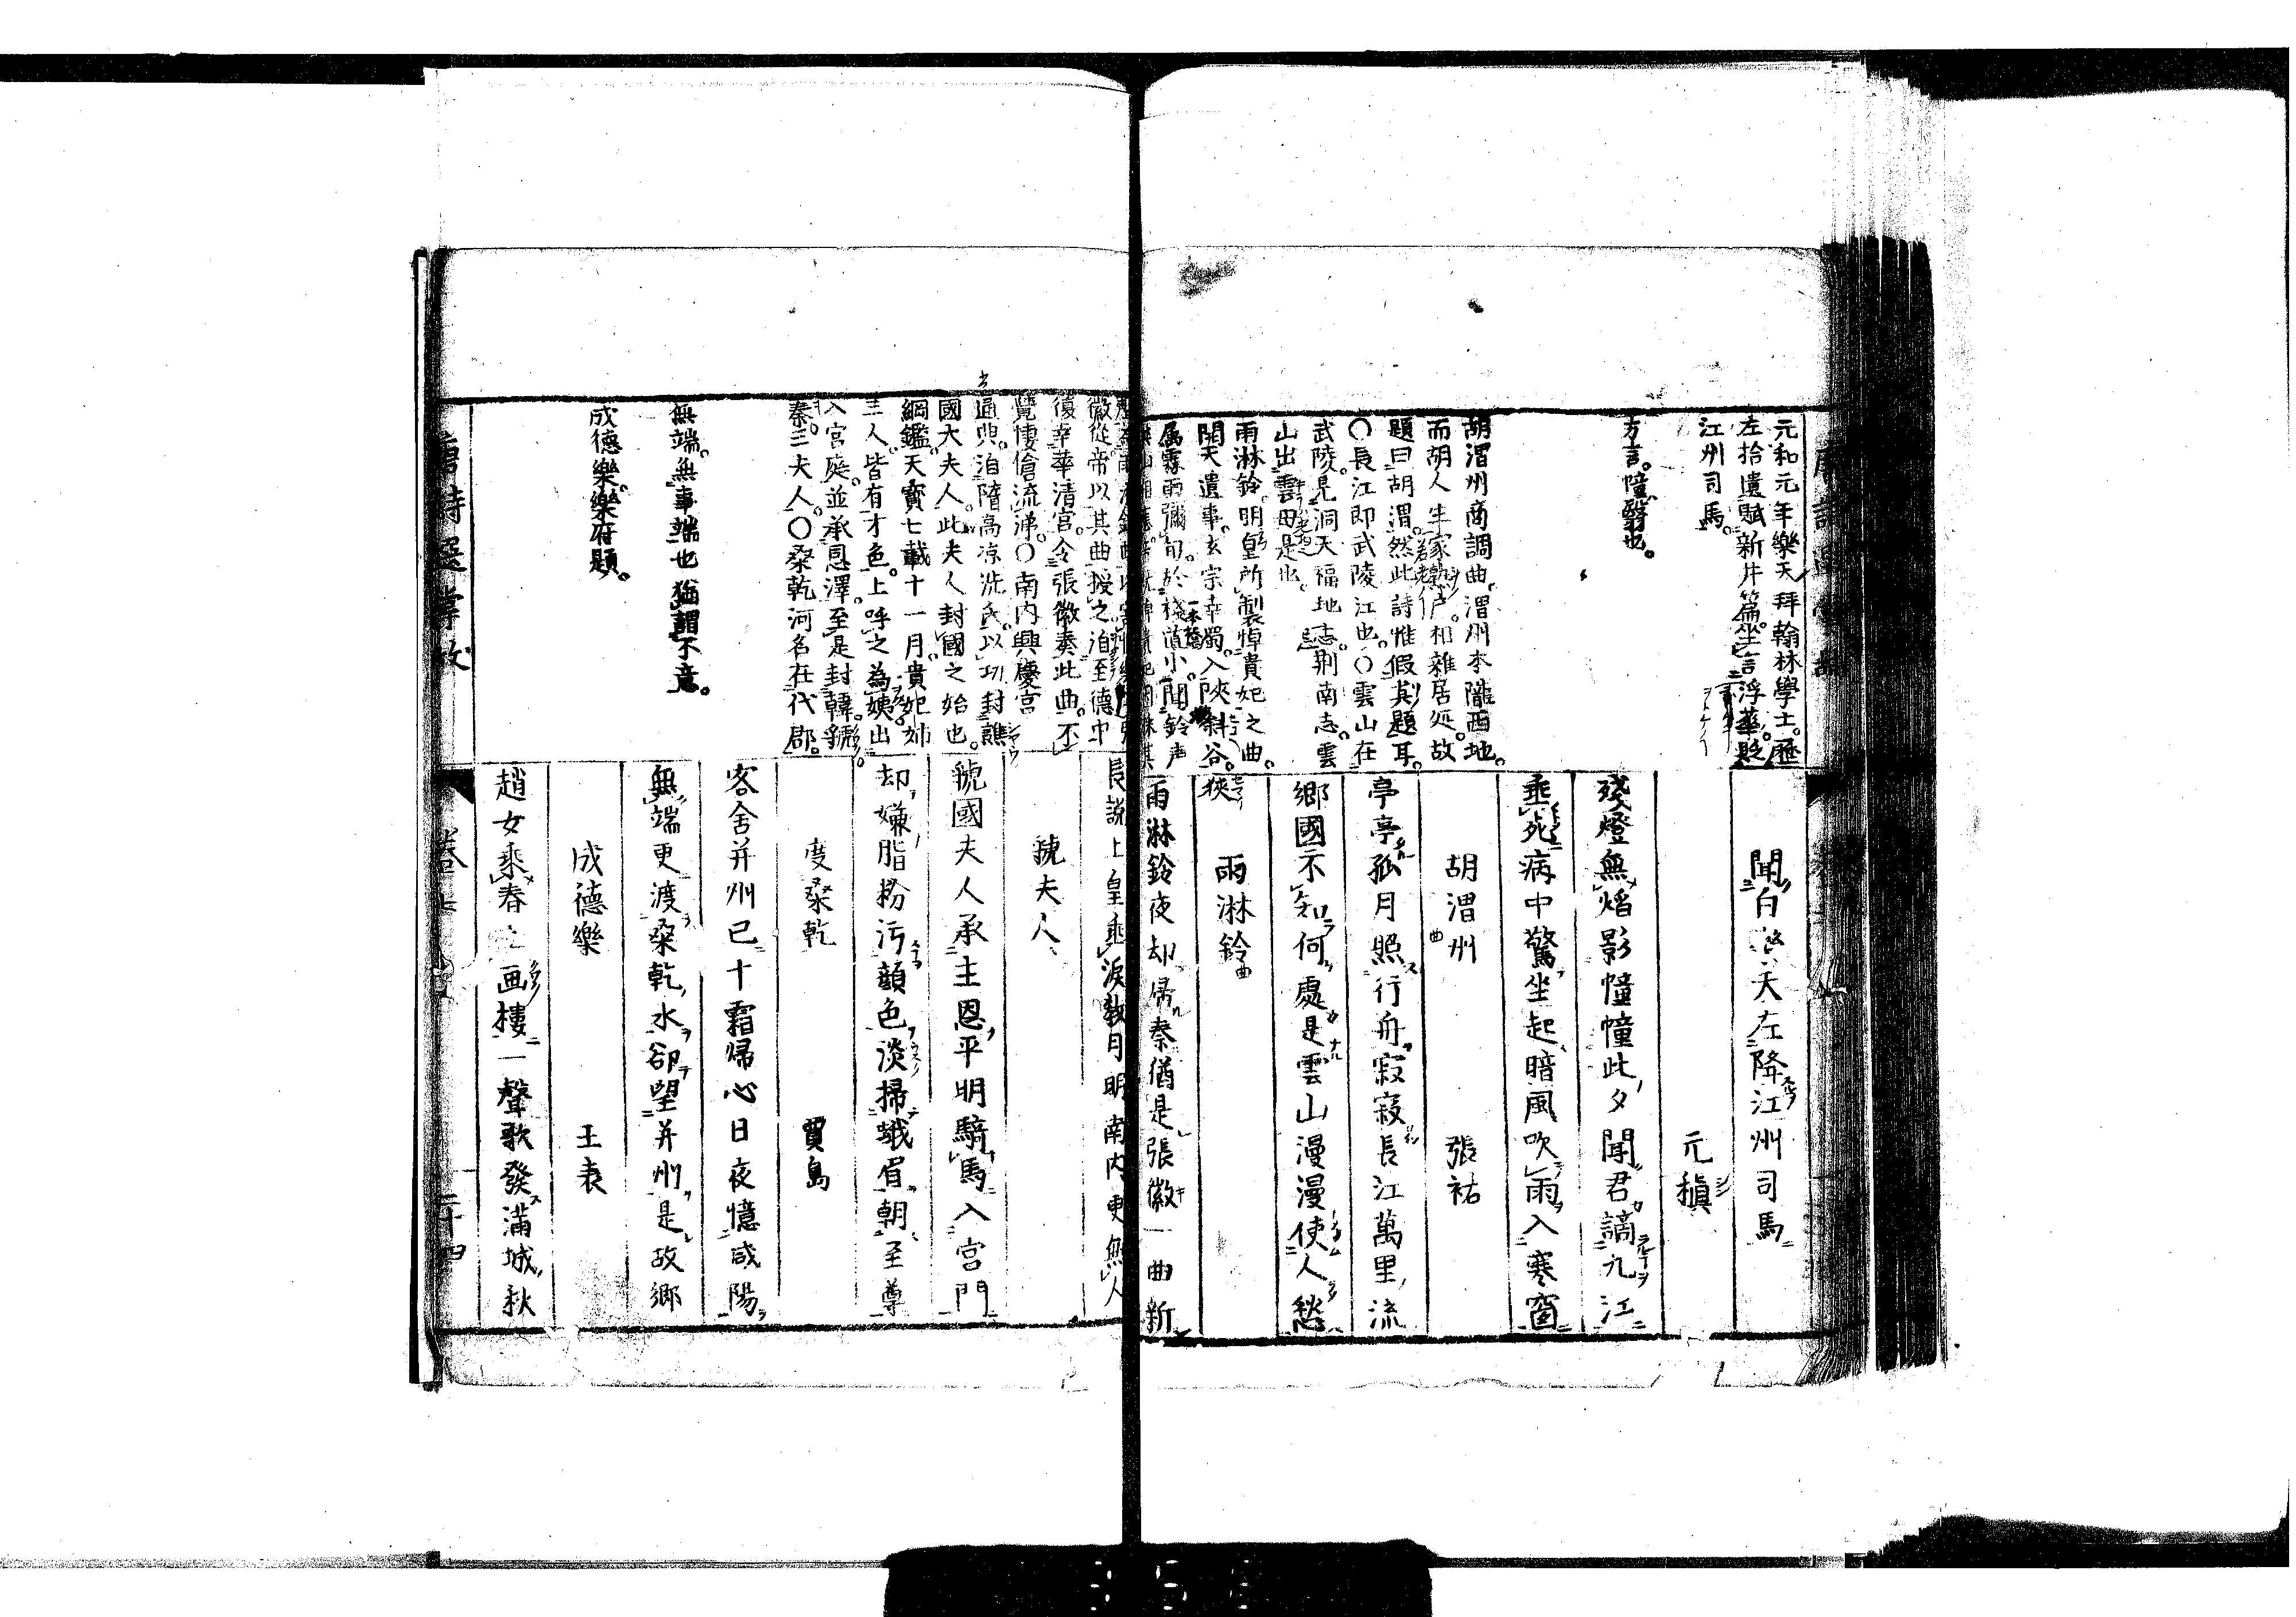 元和元年樂天拜翰林學士。歷
左拾遺賦新井篇。坐言浮華。貶
江州司馬。
方言。幢翳也。
胡渭州商調曲。渭州本隴西地。
而胡人生家熟户。相雜居処。故
題曰胡渭。然此詩惟假其題耳。
〇長江即武陵江也。〇雲山在
武陵。見洞天福地志。荆南志。雲
山出雲母是也。
雨淋鈴。明皇所製悼貴妃之曲。
開天遺事。玄宗幸蜀。入陜斜谷。
属霖雨彌旬。於棧道小。聞鈴声
聞白樂天左降江州司馬
元稹
殘燈無焰影幢幢此夕聞君謫九江
垂死病中驚坐起暗風吹雨入寒窗
胡渭州
曲
張祜
亭亭孤月照行舟寂寂長江萬里流
鄉國不知何處是雲山漫漫使人愁
雨淋鈴
曲
雨淋鈴夜却歸秦猶是張徽一曲新
徽從帝以其曲授之洎至德中
復幸華清宮。令張徽奏此曲。不
覺悽愴流涕。〇南内興慶宮
通典。洎隋高凉洗氏。以功封譙
國大夫人。此夫人封國之始也。
綱鑑。天寳七載十一月。貴妃姊
三人。皆有才色。上呼之為姨出
入宮庭。並承恩澤。至是封韓。虢。
秦。三夫人。〇桑乾河名在代郡。
無端。無事端也猶謂不意。
成德樂。樂府題。
長說上皇垂淚教月明南内更無人
虢夫人
虢國夫人承主恩平明騎馬入宮門
却嫌脂粉污顔色淡掃蛾眉朝至尊
度桑乾
賈島
客舍并州已十霜帰心日夜憶咸陽
無端更渡桑乾水卻望并州是故鄉
成德樂
王表
趙女乘春上画樓一聲歌發滿城秋
唐詩選掌故
卷七
二十四